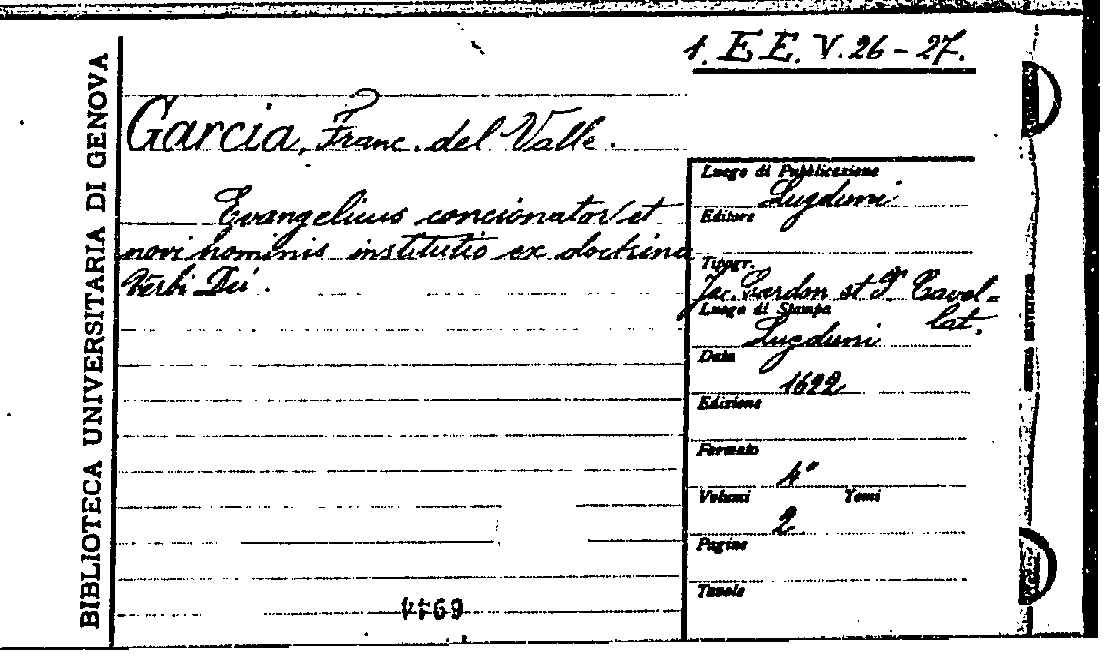 1. E E. V. 26 - 27.
BIBLIOTECA UNIVERSITARIA DI GENOVA
Garcia, Franc. del Valle.
Evangelicus concionator et
novi hominis institutio ex doctrina
Verbi Dei.
Luogo di Pubblicazione
Lugduni
Editore
Tipogr.
Jac. Cardon et P. Cavel-
lat.
Luogo di Stampa
Lugduni
Data
1622
Edizione
Formato
4°
Volumi Tomi
2
Pagine
Tavole